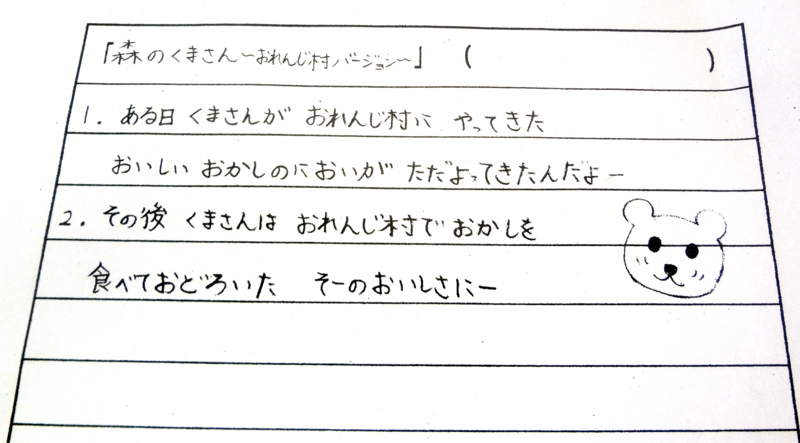 「森のくまさん～おれんじ村バージョン～」（　　　　）
1. ある日 くまさんが おれんじ村に やってきた
おいしい おかしのにおいが ただよってきたんだよー
2. その後 くまさんは おれんじ村で おかしを
食べておどろいた そーのおいしさにー